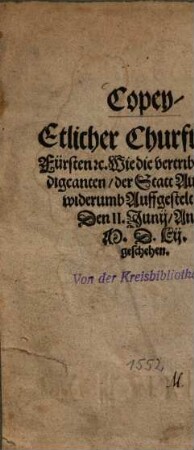 Copey/
Etlicher Churfü
Fürsten ꝛc. Wie die vertrib
digcanten/der Statt Au
widerumb Auffgestele
Den 11. Junij/An
M. D. Lij.
geschehen.
Von der Kreisbiblioth
1552.
M.